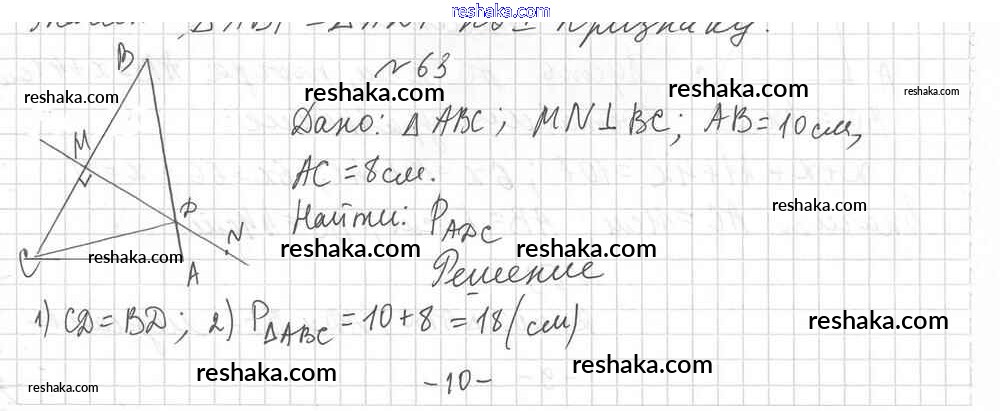 reshaka.com
, ΔАВР = ΔАКР по I признаку.
№63
reshaka.com
reshaka.com
reshaka.com
Дано: Δ ABC; MN⊥BC; AB = 10 см,
AC = 8 см.
reshaka.com
Найти: P_ADC
reshaka.com
reshaka.com
reshaka.com
B
M
D
N
C
A
Решение
1) CD = BD; 2) P_ΔABC = 10 + 8 = 18 (см)
reshaka.com
reshaka.com
reshaka.com
reshaka.com
-10-